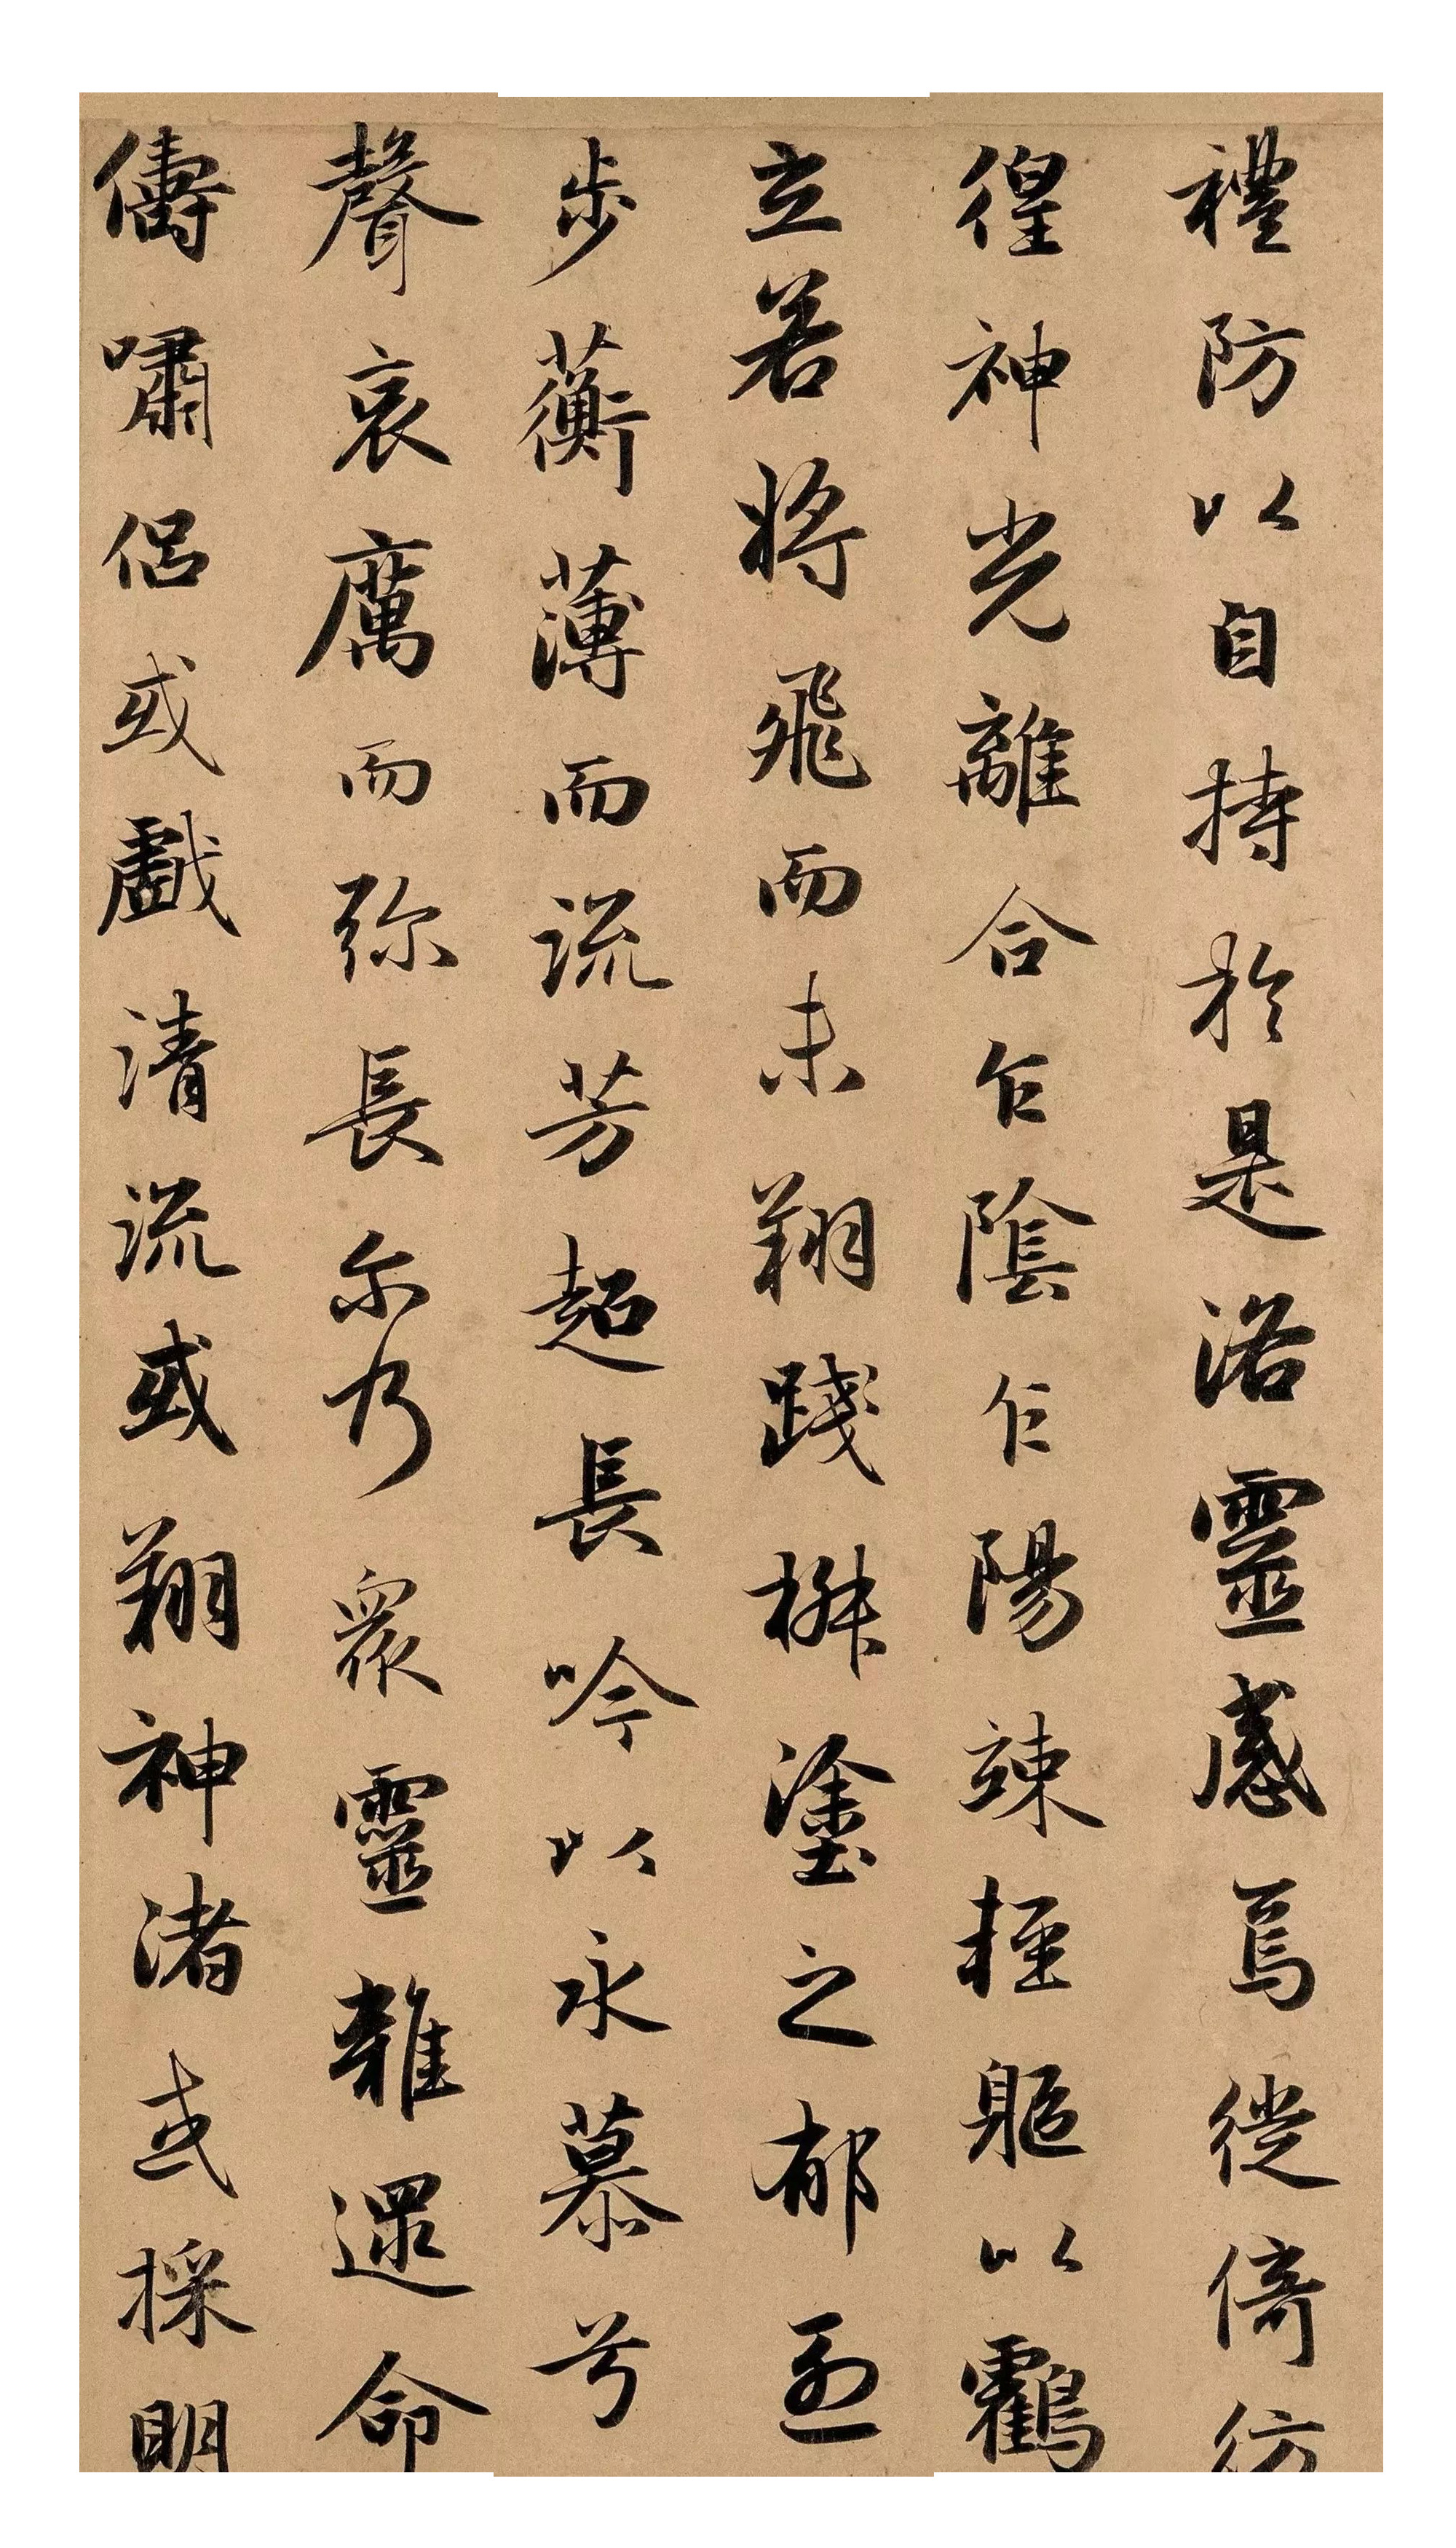 禮防以自持於是洛靈感焉徙倚彷
徨神光離合乍陰乍陽竦輕軀以鶴
立若將飛而未翔踐椒塗之郁烈
步蘅薄而流芳超長吟以永慕兮
聲哀厲而弥長尒乃眾靈雜遝命
儔嘯侶或戲清流或翔神渚或採明